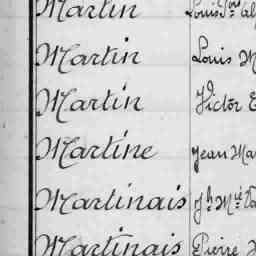 Martin Louis
Martin Louis M
Martin Victor E
Martine Jean Mar
Martinais Jh Mie
Martinais Pierre